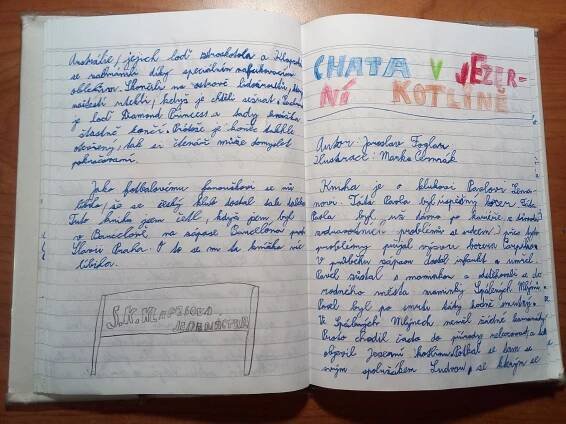 Austrálie, jejich loď ztroskotala a Klapzuba
se zachránili díky speciálním nafukovacím
oblekům. Skončili na ostrově lidožroutů, kterým
naštěstí utekli, když je chtěli sežrat.
je loď Diamond Princess a tady knížka
šťastně končí. Protože je konec takhle
otevřený, tak si čtenáři může domyslet
pokračování.
Jako fotbalovému fanouškovi se mi
líbilo, že se český klub dostal tak daleko.
Tuto knihu jsem četl, když jsem byl
v Barceloně na zápase Barcelona proti
Slavii Praha. O to se mi ta knížka víc
líbila.
S.K. KLAPZUBOVA
JEDENÁCTKA
CHATA V JEZER-
NÍ KOTLINĚ
Autor: Jaroslav Foglar
Ilustrace: Marko Čermák
Kniha je o klukovi Pavlovi
Táta Pavla byl úspěšný boxer. Táta
Pavla byl už dávno po kariéře z důvodu
zdravotních problémů se srdcem, přes tyto
problémy přijal výzvu boxera
V průběhu zápasu dostal infarkt a umřel.
Pavel zůstal s maminkou a odstěhovali se do
rodného města maminky Spálených Mlýnů.
Pavel byl po smrti táty hodně smutný.
Ve Spálených Mlýnech neměl žádné kamarády.
Proto chodil často do přírody relaxovat, a tak
objevil Jezerní kotlinu. Potkal se tam se
svým spolužákem Ludvou, se kterým se